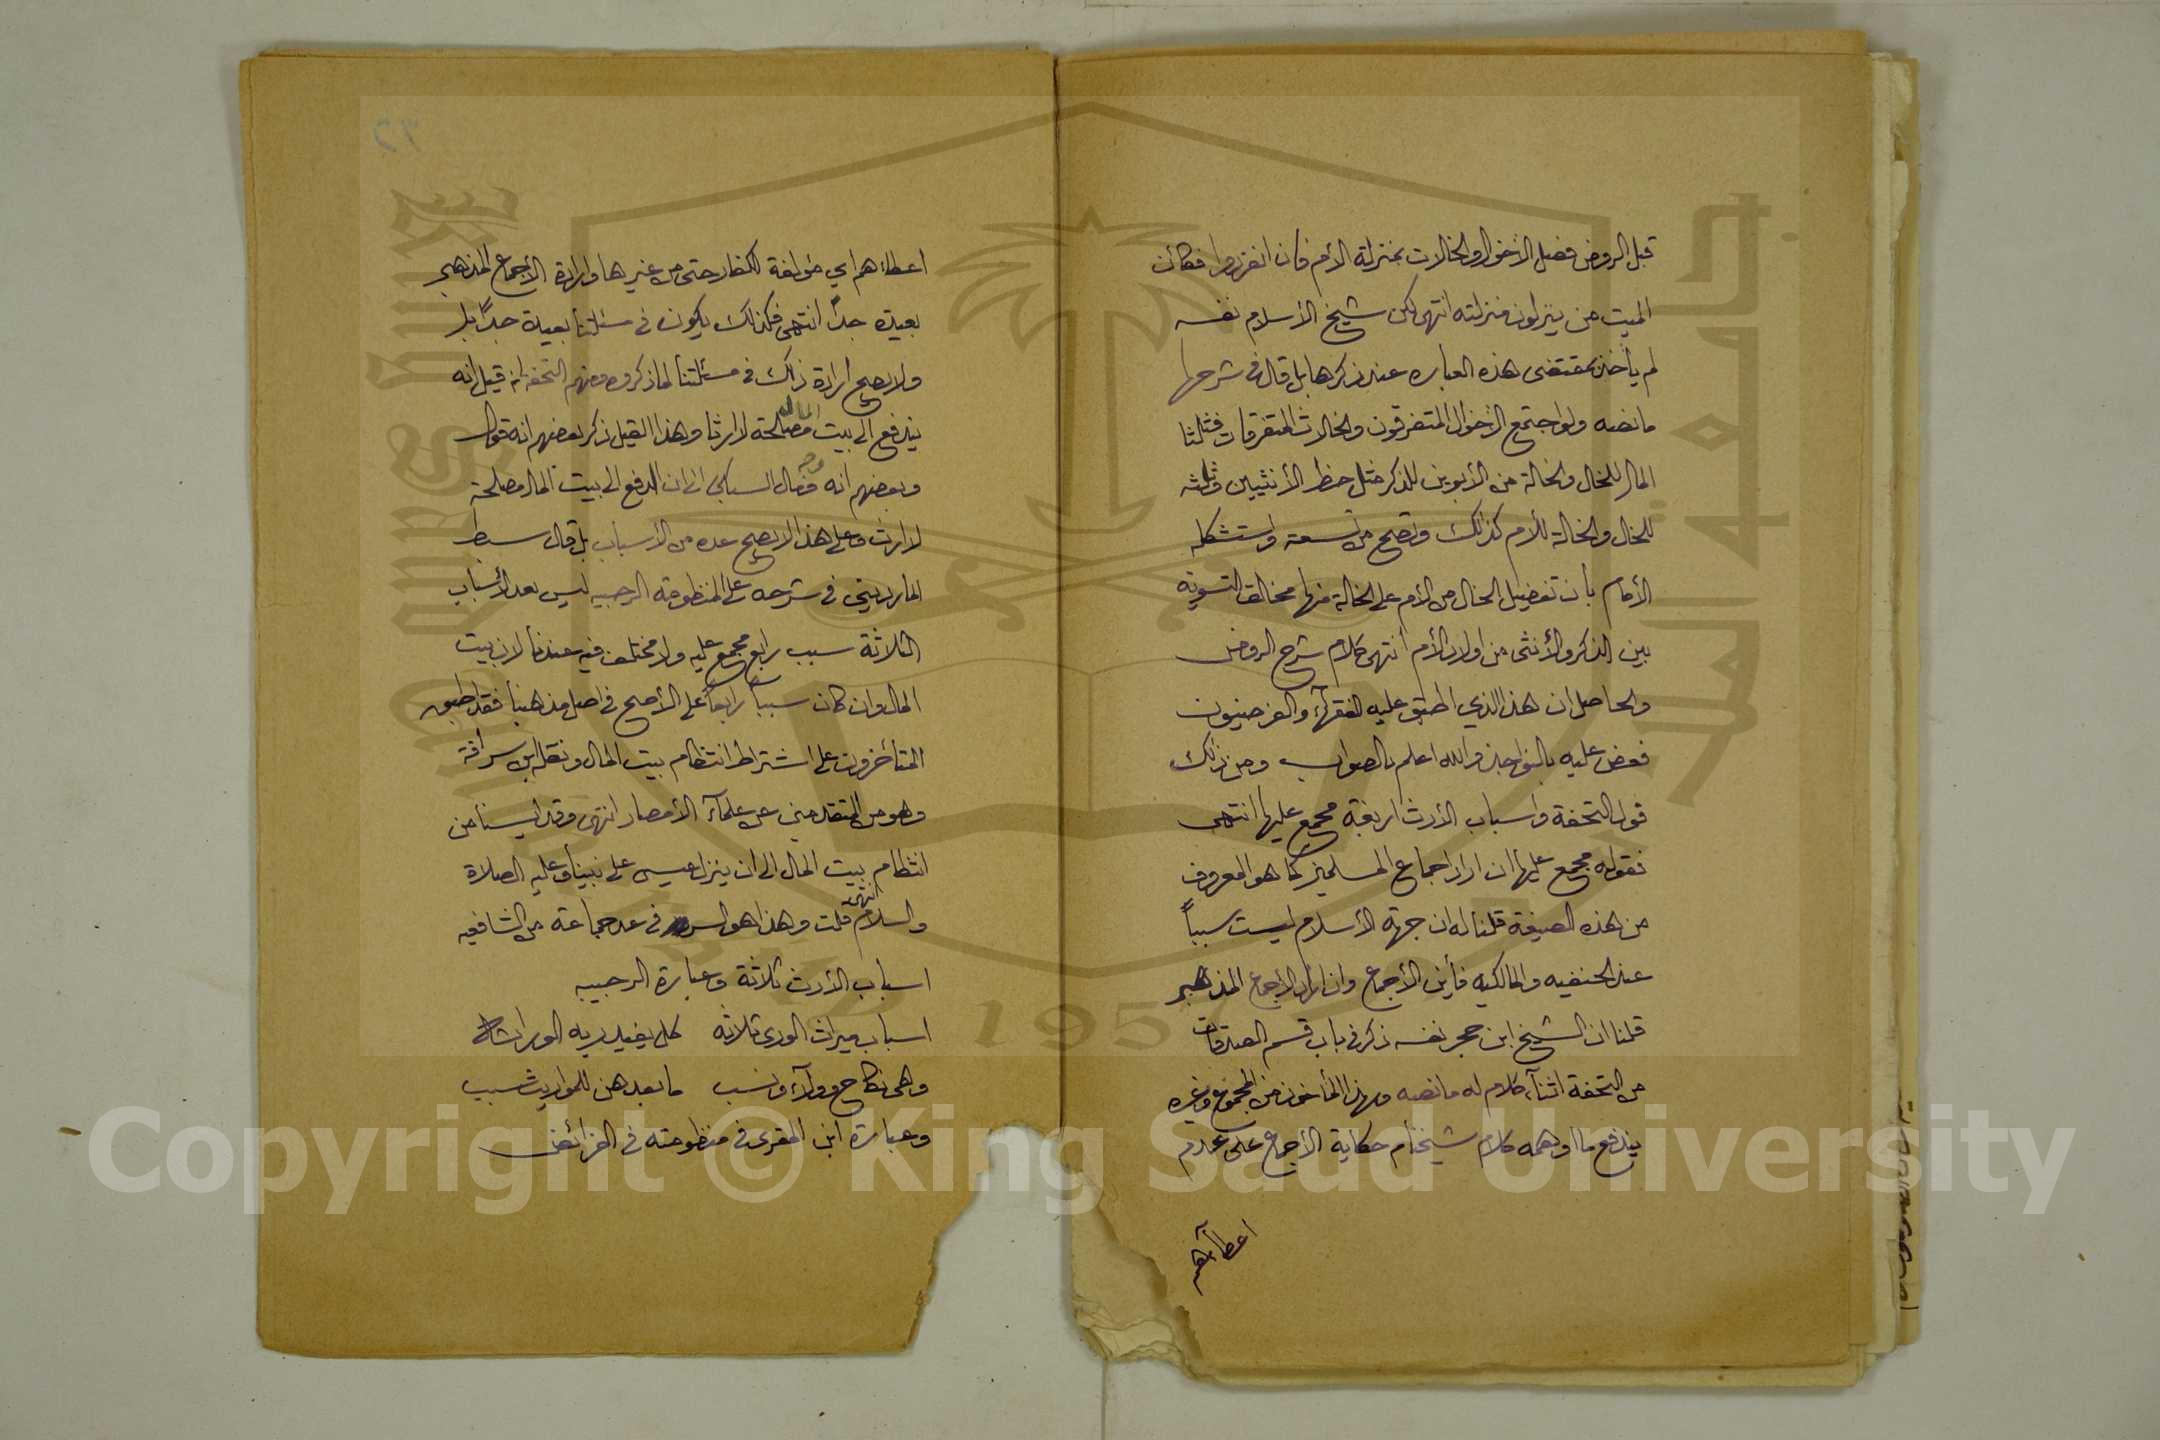 قبل الروض فصل الأخوال والخالات بمنزلة الأم فان انفردوا فكأن
الميت من ينزلون منزلته انتهى لكن شيخ الأسلام نفسه
لم يأخذ بمقتضى هذه العباره عند ذكرها بل قال في شرحها
ما نصه ولو اجتمع الأخوال المتفرقون والخالات المتفرقات فثلثا
المال للخال والخالة من الأبوين للذكر مثل حظ الأنثيين وثلثه
للخال والخالة للأم كذلك وتصح من تسعة واستشكله
الأمام بأن تفضيل الخال من الأم على الخالة منها مخالف للتسوية
بين الذكر والأنثى من اولاد الأم انتهى كلام شرح الروض
والحاصل ان هذا الذي اطبق عليه الفقهآء والفرضيون
فعض عليه بالنواجذ والله اعلم بالصواب ومن ذلك
قول التحفة واسباب الأرث اربعة مجمع عليها انتهى
فقوله مجمع عليها ان اراد اجماع المسلمين كما هو المعروف
من هذه الصيغة قلنا له ان جهة الأسلام ليست سبباً
عند الحنفيه والمالكيه فأين الأجماع وان اراد الأجماع المذهبي
قلنا ان الشيخ ابن حجر نفسه ذكر في باب قسم الصدقات
من التحفة اثنآء كلام له ما نصه وبهذا المأخوذ من المجموع وغيره
يندفع ما اوهمه كلام شيخنا من حكاية الأجماع على عدم
اعطآئهم
اعطائهم اي مؤلفة الكفار حتى من غيرها وارادة الأجماع المذهبي
بعيدة جداً انتهى فكذلك يكون في مسئلتنا بعيدة جداً بل
ولا يصح ارادة ذلك في مسئلتنا لما ذكروه ومنهم التحفة انه قيل انه
يندفع الى بيت المال مصلحة لا ارثا وهذا القيل ذكر بعضهم انه قول
وبعضهم انه وجه فقال السبكي الى ان الدفع الى بيت المال مصلحة
لا ارث وعلى هذا لا يصح عده من الأسباب بل قال سبط
المارديني في شرحه على المنظومة الرحبيه ليس بعد الأسباب
الثلاثة سبب رابع مجمع عليه ولا مختلف فيه عندنا لان بيت
المال وان كان سبباً رابعاً على الأصح في اصل مذهبنا فقد اطبق
المتأخرون على اشتراط انتظام بيت المال ونقله ابن سراقة
وهو من المتقدمين عن علمآء الأمصار انتهى وقد ايسنا من
انتظام بيت المال الى ان ينزل عيسى على نبينا وعليه الصلاة
والسلام انتهى قلت وهذا هو السر في عد جماعة من الشافعيه
اسباب الأرث ثلاثة وعبارة الرحبيه
اسباب ميراث الورى ثلاثه كل يفيد ربه الوراثه
وهي نكاح وولآء ونسب ما بعدهن للمواريث سبب
وعبارة ابن المقرى في منظومته في الفرائض
Copyright © King Saud University
1957